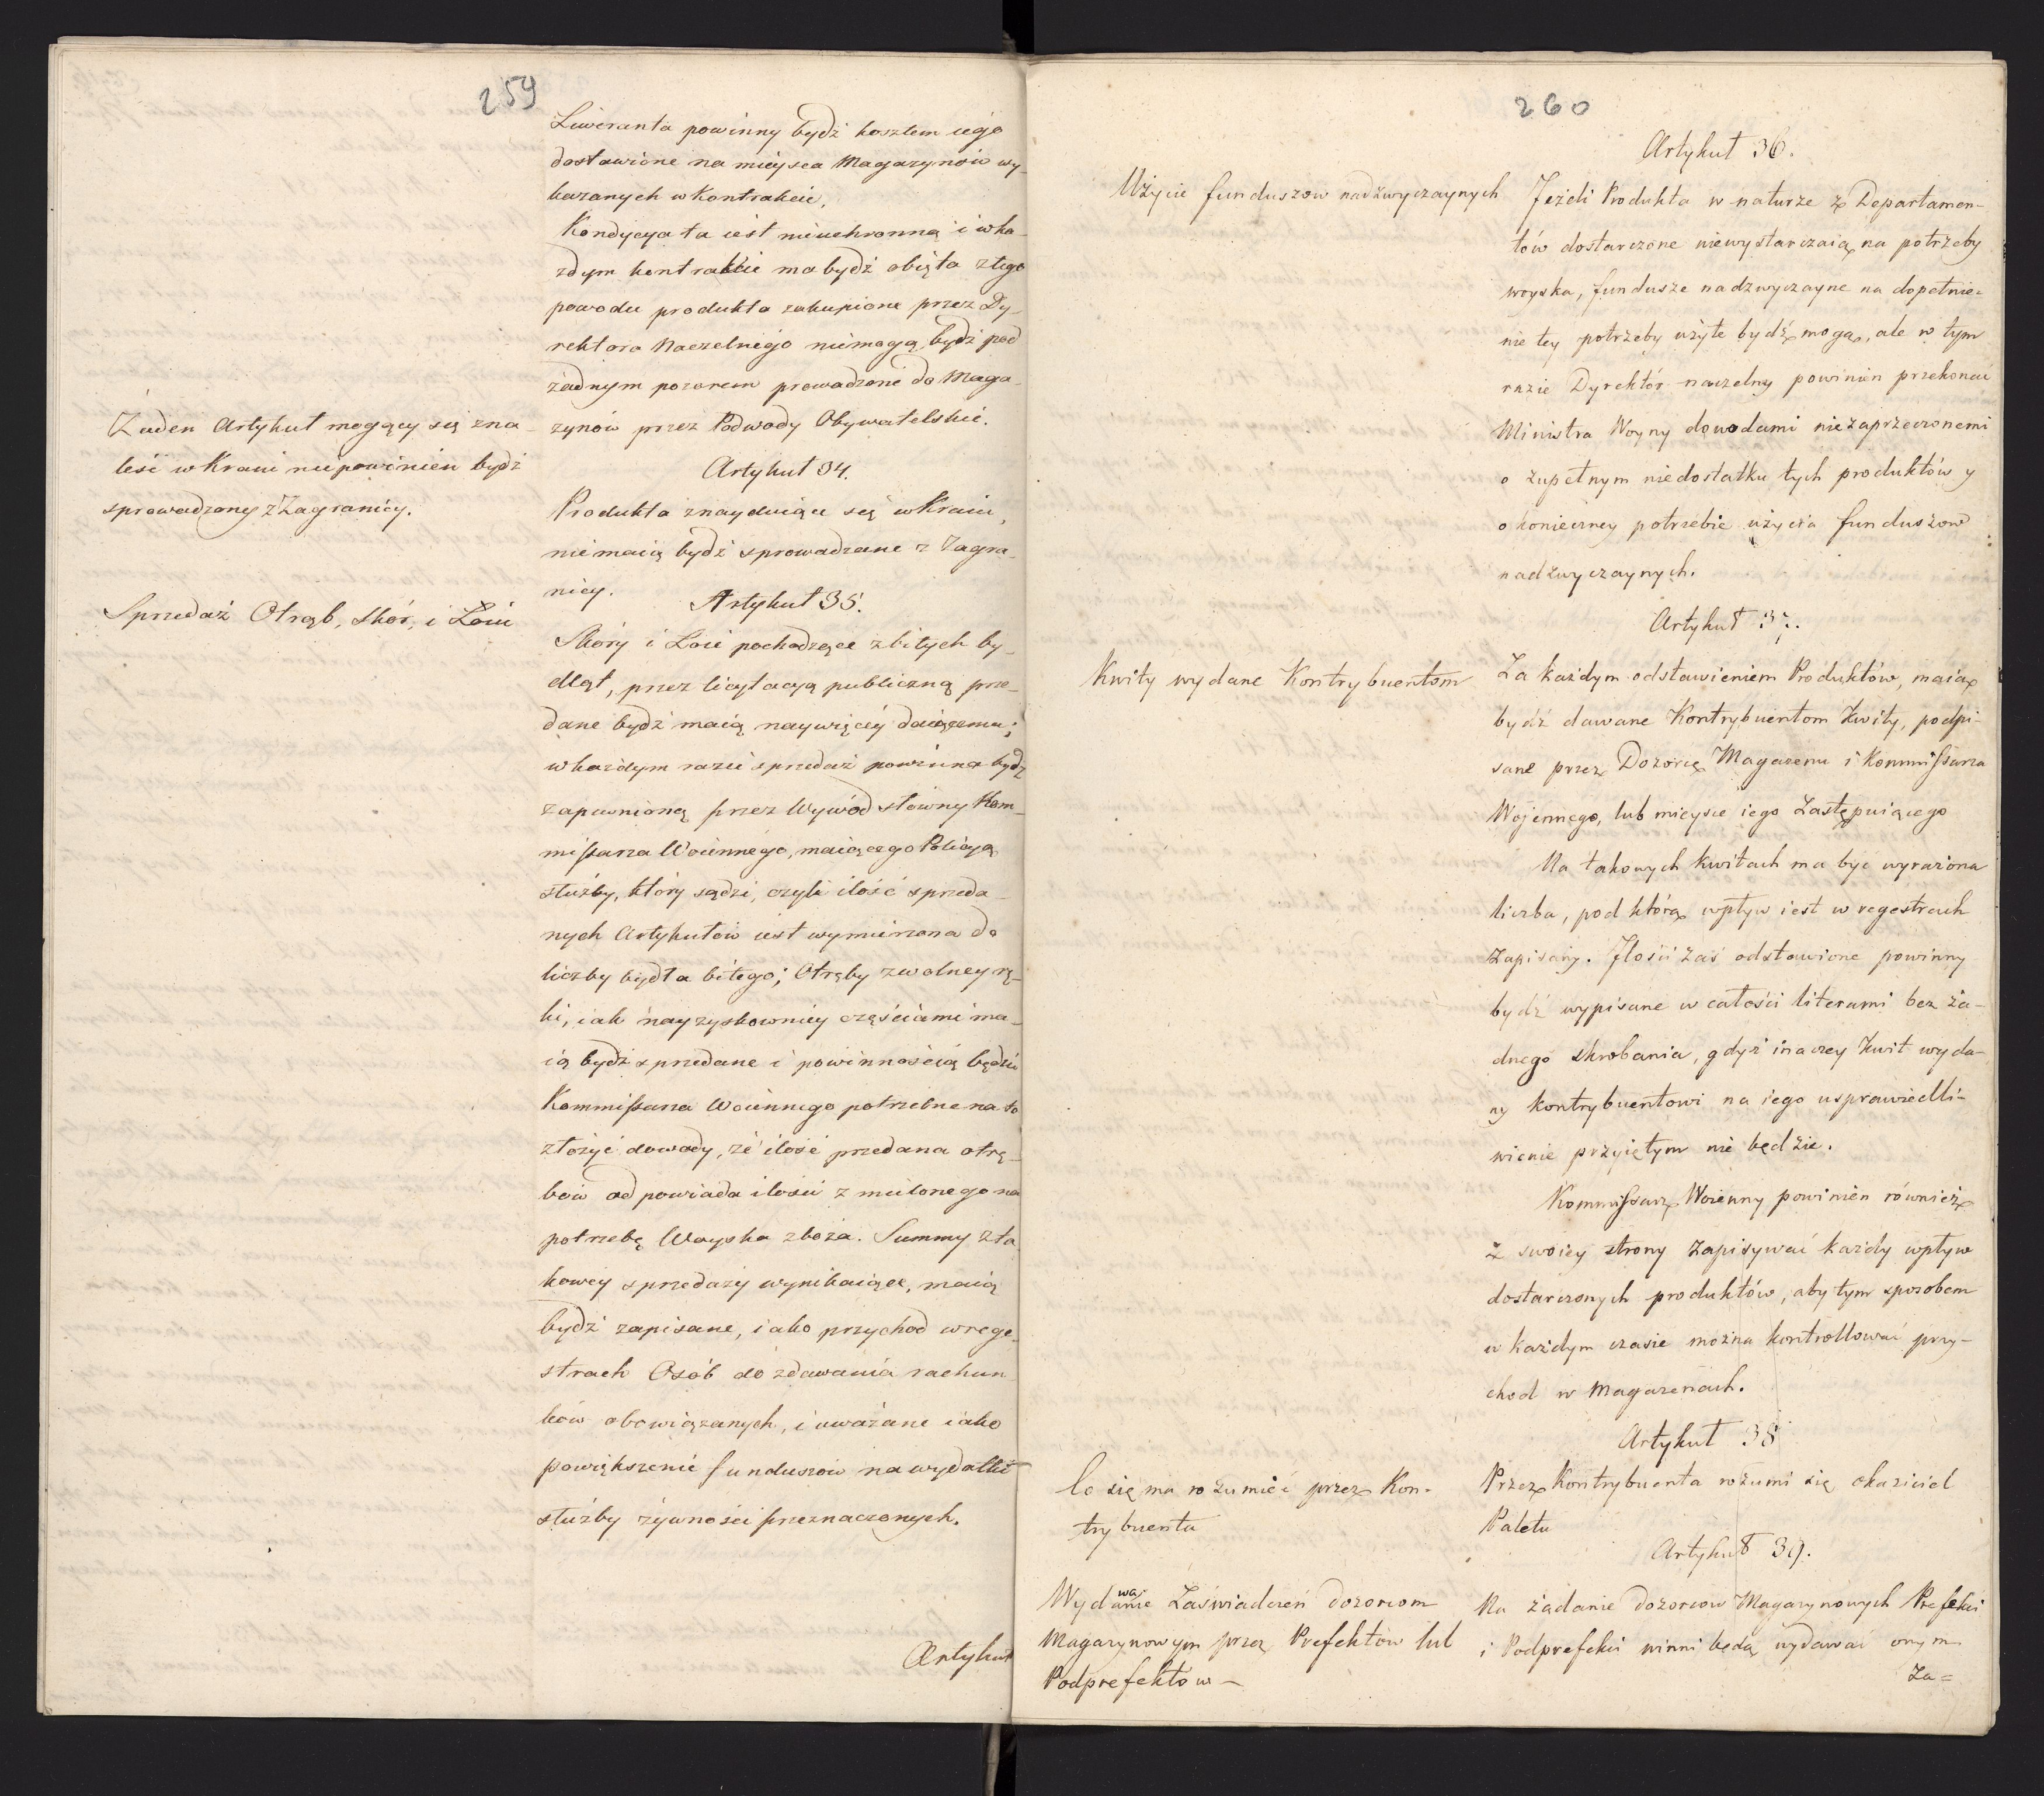 259
Liweranta powinny bydź kosztem iego
dostawione na mieysca Magazynów wy-
kazanych w Kontrakcie.
Kondycya ta iest nieuchronną i w ka-
żdym kontrakcie ma bydź obięta z tego
powodu produkta zakupione przez Dy-
rektora Naczelnego niemogą bydź pod
żadnym pozorem prowadzone do Maga-
zynów przez Podwody Obywatelskie.
Żaden Artykuł mogący się zna-
leść w Kraiu niepowinien bydź
sprowadzony z Zagranicy.
Artykuł 34.
Produkta znayduiące się w Kraiu,
niemaią bydź sprowadzane z Zagra-
nicy.
Sprzedaż Otrąb, Skór, i Łoiu
Artykuł 35.
Skóry i Łoie pochodzące z bitych by-
dląt, przez licytacyą publiczną prze-
dane bydź maią naywięcéy daiącemu;
w każdym razie sprzedaż powinna bydź
zapewnioną przez Wywód słowny Kom-
missarza Woiennégo, maiącego Policyą
służby, który sądzi, czyli ilość sprzeda-
nych Artykułów iest wymierzona do
liczby bydła bitego; Otręby z wolney rę-
ki, iak nayzyskowniey częściami ma-
ią bydź sprzedane i powinnością będzie
Kommissarza Woiennego potrzebne na to
złożyć dowody, że ilość przedana otrę-
bów odpowiada ilości zmielonego na
potrzebę Woyska zboża. Summy z ta-
kowéy sprzedaży wynikaiące, maią
bydź zapisane, iako przychod w rege-
strach Osób do zdawania rachun-
ków obowiązanych, i uważane iako
powiększenie funduszów na wydatki
służby żywności przeznaczonych.
Artykuł
260
Artykuł 36.
Użycie funduszow nadzwyczaynych
Jeżeli Produkta w naturze z Departamen-
tów dostarczone niewystarczaią na potrzeby
woyska, fundusze nadzwyczayne na dopełnie-
nie tey potrzeby użyte bydź mogą, ale w tym
razie Dyrektór naczelny powinien przekonać
Ministra Woyny dowodami niezaprzeczonemi
o zupełnym niedostatku tych produktów y
o konieczney potrzebie użycia funduszow
nadzwyczaynych.
Artykuł 37.
Kwity wydane Kontrybuentom
Za każdym odstawieniem Produktów, maią
bydź dawane Kontrybuentom Kwity, podpi-
sane przez Dozorcę Magazenu i Kommissarza
Wojennego, lub mieysce iego Zastępuiącego
Na takowych kwitach ma być wyrażona
liczba, pod którą wpływ iest w regestrach
zapisany. Ilości zaś odstawione powinny
bydź wypisane w całości literami bez ża-
dnego skrobania, gdyż inaczey kwit wyda-
ny kontrybuentowi na iego usprawiedli-
wienie przyiętym nie będzie.
Kommissarz Woienny powinien również
z swoiey strony zapisywać każdy wpływ
dostarczonych produktów, aby tym sposobem
w każdym czasie można kontrollować przy-
chod w Magazenach.
Artykuł 38
Co się ma rozumieć przez Kon-
trybuenta
Przez Kontrybuenta rozumi się okaziciel
Paletu
Artykuł 39.
Wydawanie Zaświadczeń dozorcom
Magazynowym przez Prefektów lub
Podprefektów –
Na żądanie dozorcow Magazynowych Prefekci
i Podprefekci winni będą wydawać onym
Za=